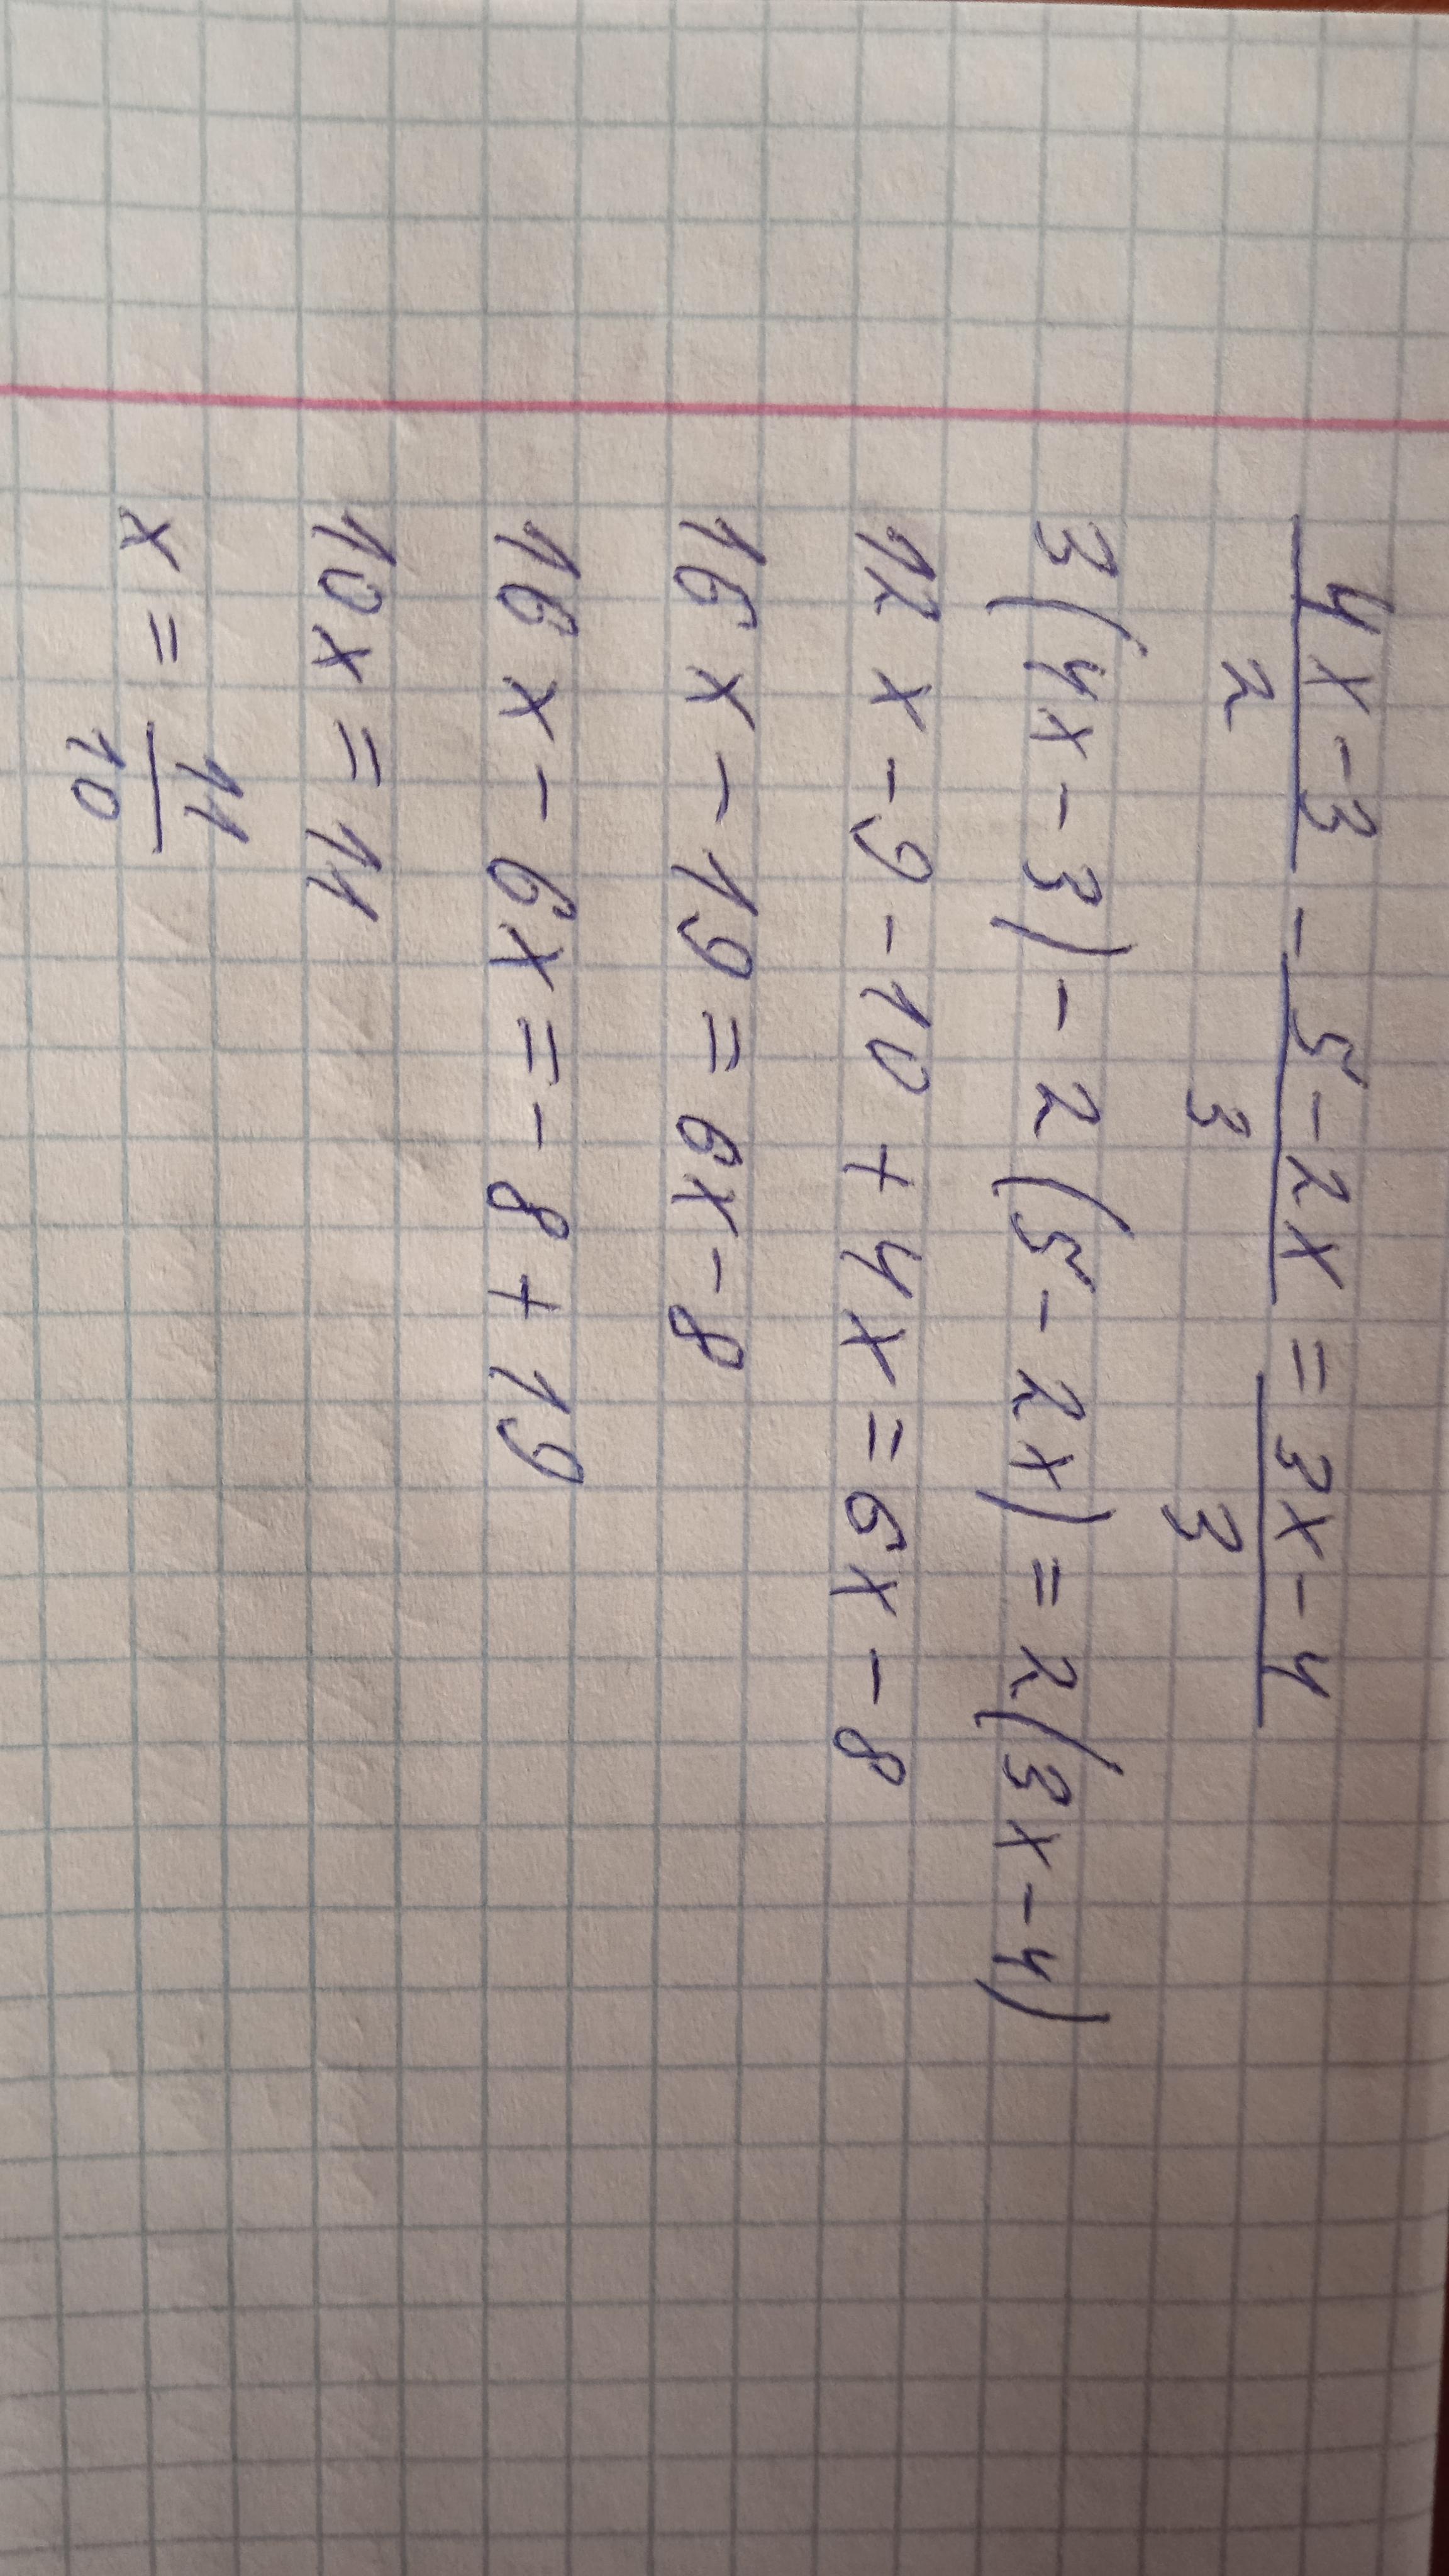 4x-3/2 - 5-2x/3 = 3x-4/3
3(4x-3)-2(5-2x)=2(3x-4)
12x-9-10+4x=6x-8
16x-19=6x-8
16x-6x=-8+19
10x=11
x=11/10